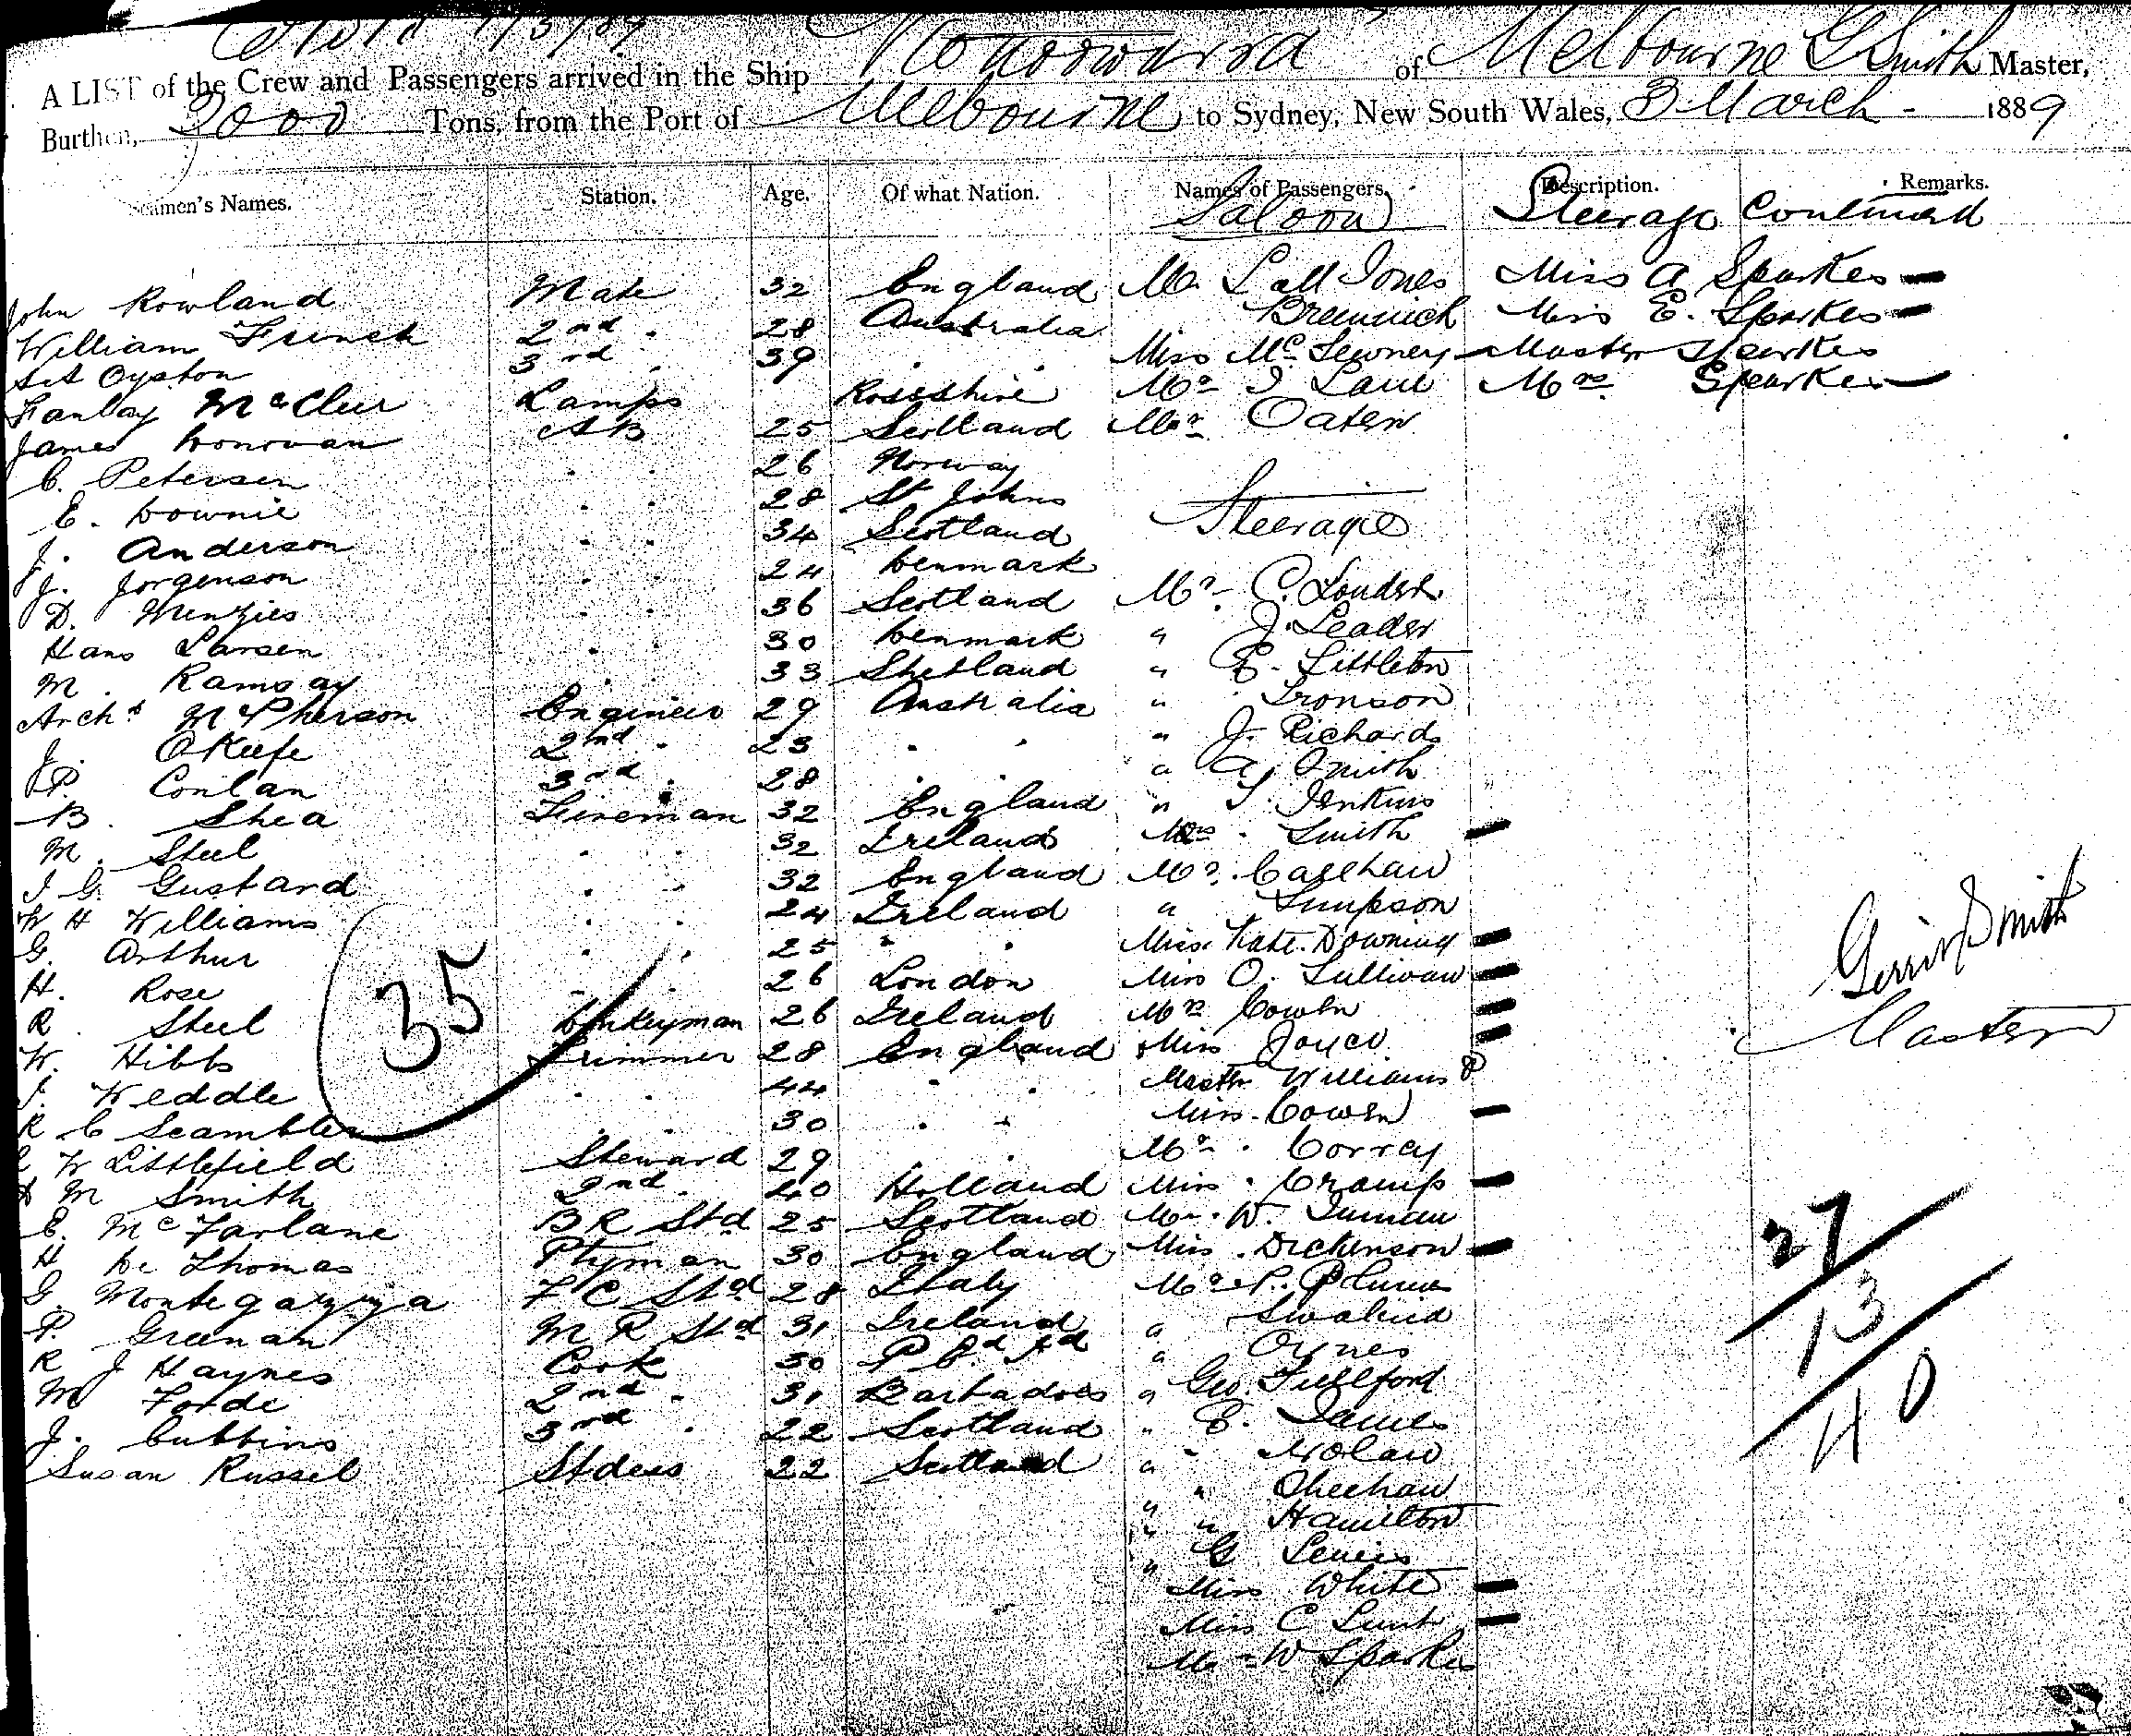 A LIST of the Crew and Passengers arrived in the Ship Konoowarra of Melbourne G Smith Master,
Burthen, 2000 Tons, from the Port of Melbourne to Sydney, New South Wales, 3 March 1889
Names. Station. Age. Of what Nation. Names of Passengers. Description. Remarks.
Saloon Steerage Continued
John Rowland Mate 32 England Mr Jones Miss A Sparkes
William French 2nd " 28 Australia Miss E. Sparkes
Oyston 3rd " 39 " " Miss Master Sparkes
Lamps Rossshire Mr Mrs Sparkes
James Donovan AB 25 Scotland Oaten
C. Petersen " " 26 Norway
E. Downie " " 28 St Johns Steerage
J. Anderson " " 34 Scotland
J. Jorgenson " " 24 Denmark
D. Menzies " " 36 Scotland Mr C.
Hans Larsen " " 30 Denmark " J. Leader
M. Ramsay " " 33 Shetland " E. Littleton
Archd McPherson Engineer 29 Australia " Tronson
J. OKeefe 2nd " 23 " " " J. Richards
P. Conlan 3rd " 28 " " " A. Smith
B. Shea Fireman 32 England " Jenkins
M. Steel " " 32 Ireland Mrs Smith
J G. Gustard " " 32 England Mr
W H Williams " " 24 Ireland " Simpson
G. Arthur " " 25 " " Miss Kate Downing
H. Rose " " 26 London Miss O. Sullivan
R. Steel Donkeyman 26 Ireland Cowen
W. Hibbs Trimmer 28 England Miss Joyce
J. Weddle " " 44 " " Master Williams
R C Scambler " " 30 " " Miss Cowen
W Littlefield Steward 29 " " Mr
M Smith 2nd " 40 Holland Miss Cramp
E. McFarlane B R Std 25 Scotland Mr W.
H De Thomas Ptyman 30 England Miss Dickenson
G. Montegazzya F C Std 28 Italy Mr
P. Greenan M R Std 31 Ireland "
R J Haynes Cook 30 "
M Forde 2nd " 31 Barbadoes " Geo. Fullford
J. Cubbins 3rd " 22 Scotland " E. James
Susan Russel Stdess 22 Scotland " " Nolan
" " Sheehan
" " Hamilton
" G Lewis
Miss White
Miss C Lunt
Mr W Sparkes
35
Gerrit Smith
Master
27
13
40